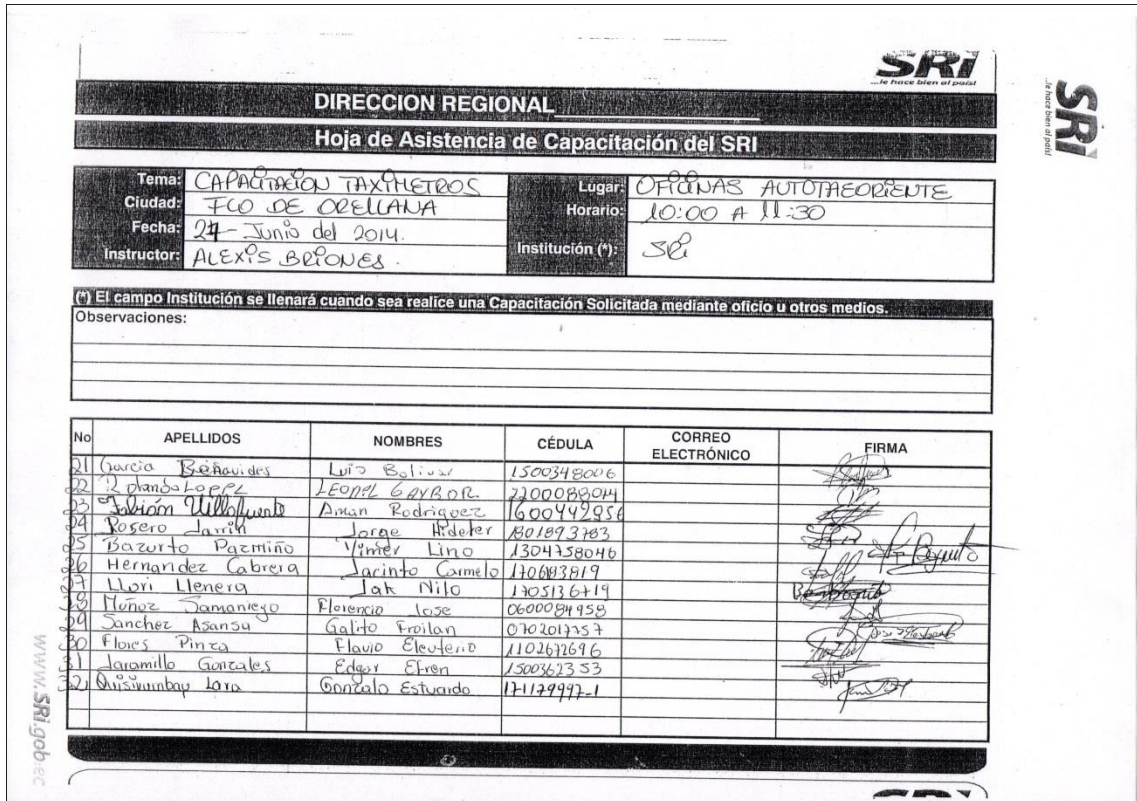 SRi
...le hace bien al país!
SRi
...le hace bien al país!
DIRECCION REGIONAL
Hoja de Asistencia de Capacitación del SRI
Tema: CAPACITACION TAXIMETROS
Ciudad: FCO DE ORELLANA
Fecha: 27 - Junio del 2014.
Instructor: ALEXIS BRIONES.
Lugar: OFICINAS AUTOTAEORIENTE
Horario: 10:00 A 11:30
Institución (*): SRi
(*) El campo Institución se llenará cuando sea realice una Capacitación Solicitada mediante oficio u otros medios.
Observaciones:
No APELLIDOS NOMBRES CÉDULA CORREO ELECTRÓNICO FIRMA
21 Garcia Benavides Luis Bolivar 1500348006
22 Rolando Lopez LEONEL GAYBOR 2200088014
23 Fabián Villafuente Aman Rodriguez 1600442956
24 Rosero Jarrin Jorge 1801893783
25 Bazurto Pazmiño Vimer Lino 1304758046
26 Hernandez Cabrera Jacinto Carmelo
27 LLori Llenera Jak Nilo 1705136719
28 Muñoz Samaniego Florencio Jose 0600084958
29 Sanchez Asansa Galito Froilan 0702017757
30 Flores Pinza Flavio Eleuterio 1102672696
31 Jaramillo Gonzales Edgar Efren 1500362353
32 Quisimbay Lara Gonzalo Estuardo 171179997-1
www.SRi.gob.ec